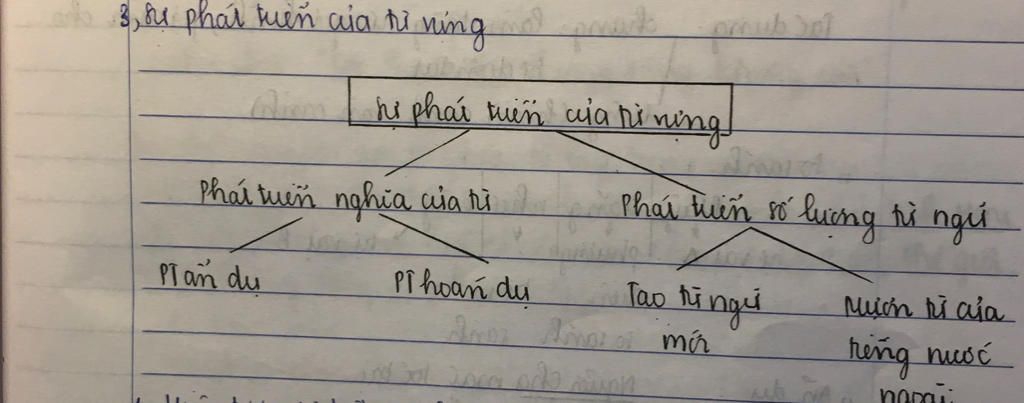 3, Sự phát triển của từ vựng
Sự phát triển của từ vựng
Phát triển nghĩa của từ
Phát triển số lượng từ ngữ
PT ẩn dụ
PT hoán dụ
Tạo từ ngữ
mới
Mượn từ của
tiếng nước
ngoài